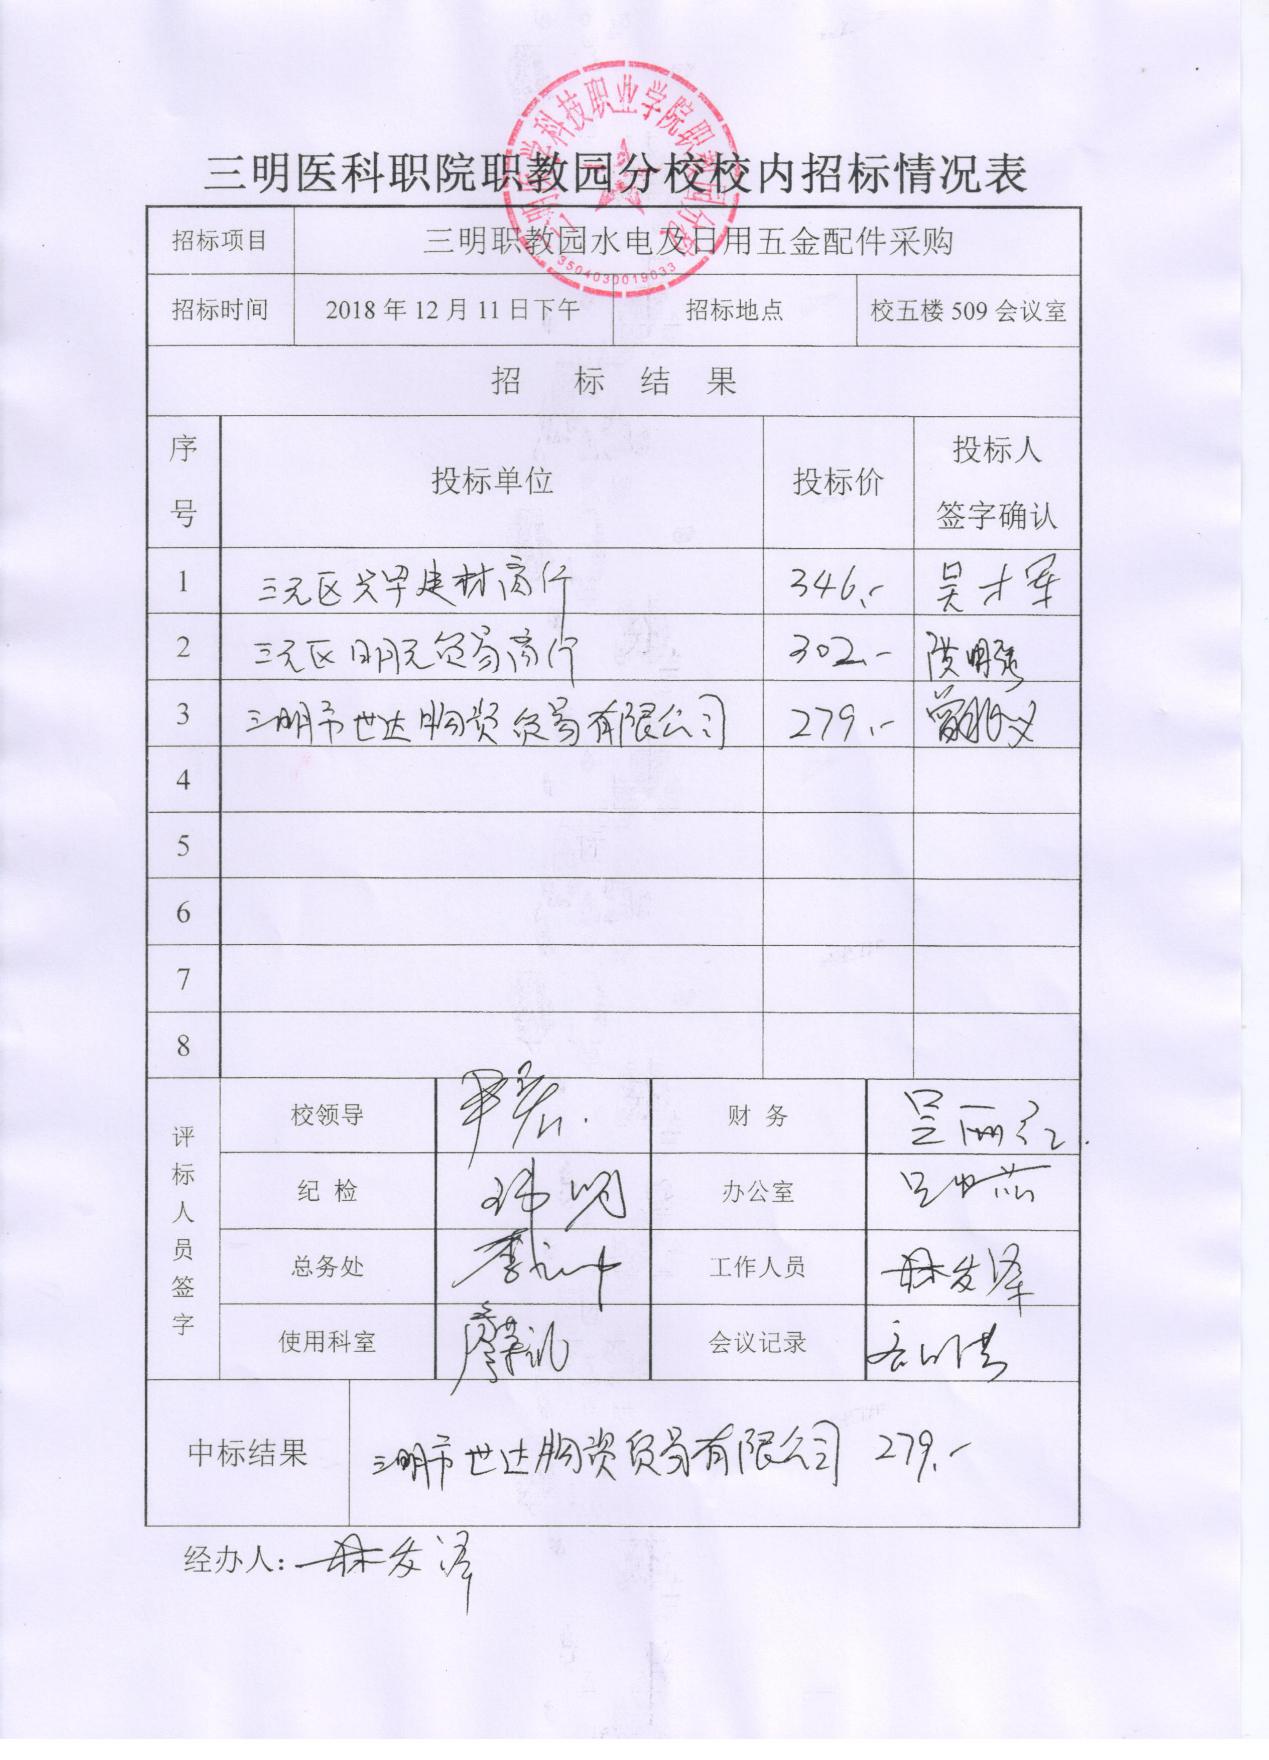 三明医学科技职业学院职教园分校
3504030019033
三明医科职院职教园分校校内招标情况表
招标项目 三明职教园水电及日用五金配件采购
招标时间 2018 年 12 月 11 日下午 招标地点 校五楼 509 会议室
招 标 结 果
序号 投标单位 投标价 投标人签字确认
1 三元区 建材商行 346.- 吴才军
2 三元区明元贸易商行 302.- 洪明强
3 三明市世达物资贸易有限公司 279.-
4
5
6
7
8
评标人员签字
校领导 财 务 吴丽红
纪 检 办公室
总务处 工作人员 林发泽
使用科室 会议记录
中标结果 三明市世达物资贸易有限公司 279.-
经办人: 林发泽